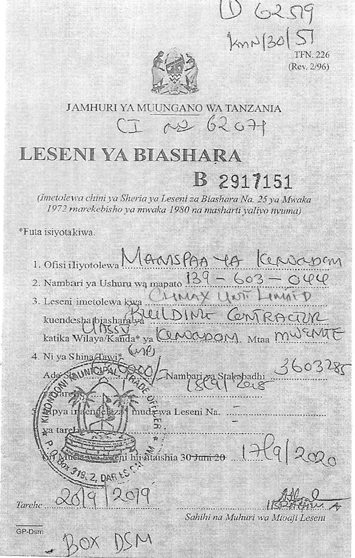 D 62519
KMN/30/51
TFN. 226
(Rev. 2/96)
JAMHURI YA MUUNGANO WA TANZANIA
CI No 62071
LESENI YA BIASHARA
B 2917151
(imetolewa chini ya Sheria ya Leseni za Biashara Na. 25 ya Mwaka
1972 marekebisho ya mwaka 1980 na masharti yalivo nyuma)
*Futa isiyotakiwa.
1. Ofisi iliyotolewa MANISPAA YA KINONDONI
2. Nambari ya Ushuru wa mapato 139-603-044
3. Leseni imetolewa kwa CLIMAX UNIT LIMITED
kuendesha biashara ya BUILDING CONTRACTOR
katika Wilaya/Kanda* ya KINONDONI Mtaa
4. Ni ya Shina/Tawi*
Ada Nambari ya Stakabadhi 3603285
KINONDONI MUNICIPAL TRADE OFFICER
P. O. Box 31902, DAR ES SALAAM
Mpya inaendeleza muda wa Leseni Na. -
ya tarehe -
30 Juni 20 17/9/2020
Tarehe 20/9/2019
Sahihi na Muhuri wa Mtoaji Leseni
GP-Dsm
BOX DSM